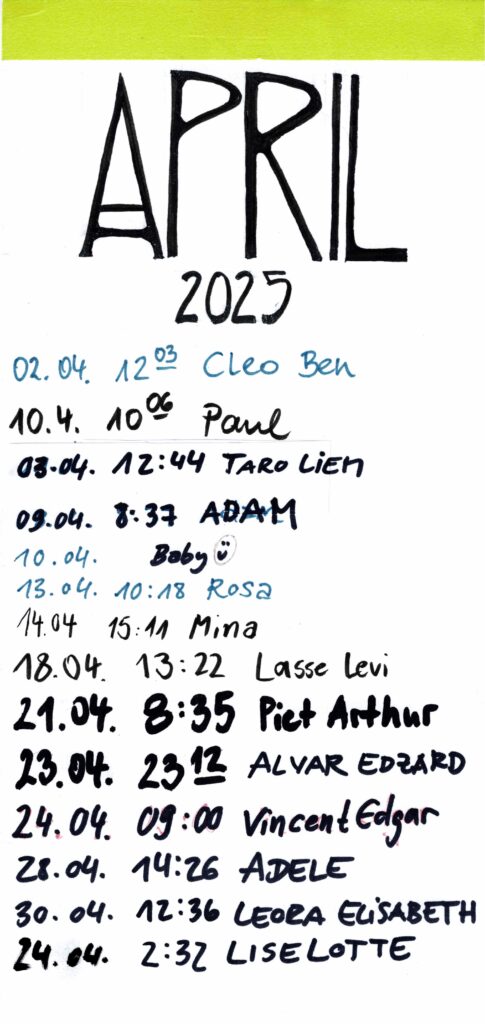 APRIL
2025
02.04. 12 03 Cleo Ben
10.4. 10 06 Paul
03.04. 12:44 TARO LiEM
09.04. 8:37 ADAM
10.04. Baby
13.04. 10:18 Rosa
14.04 15:11 Mina
18.04. 13:22 Lasse Levi
21.04. 8:35 Piet Arthur
23.04. 23 12 ALVAR EDZARD
24.04. 09:00 Vincent Edgar
28.04. 14:26 ADELE
30.04. 12:36 LEORA ELiSABETH
24.04. 2:32 LISELOTTE